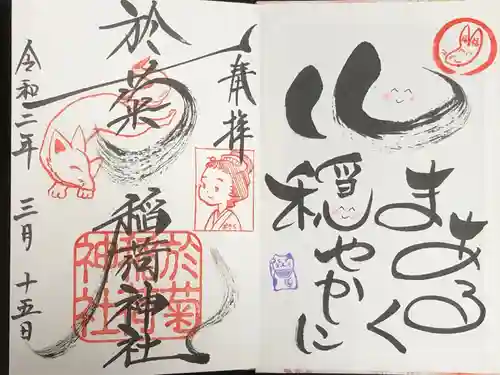 心
まあるく
穏やかに
奉拝
於菊稲荷神社
令和二年 三月 十五日
於菊
稲荷
神社